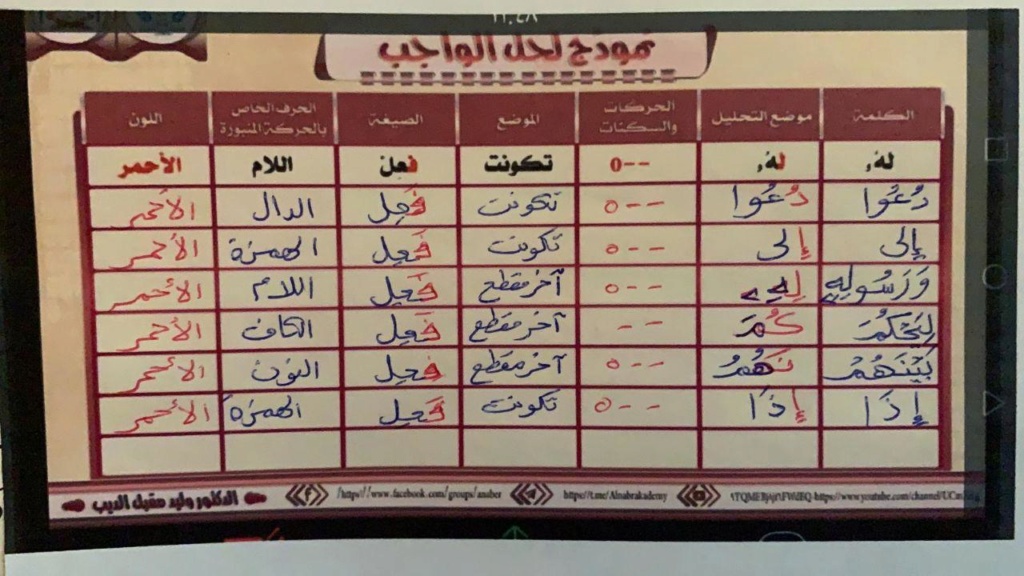 ١١:٤٨
نموذج لحل الواجب
الكلمة موضع التحليل الحركات والسكنات الموضع الصيغة الحرف الخاص بالحركة المنبورة اللون
لهۥ لهۥ --٥ تكونت فعل اللام الأحمر
دُعُوا دُعُوا --٥ تكونت فعل الدال الأحمر
إلى إلى --٥ تكونت فعل الهمزة الأحمر
وَرَسُولِهِۦ لِهِۦ --٥ آخر مقطع فعل اللام الأحمر
لِيَحْكُمَ كُمَ -- آخر مقطع فعل الكاف الأحمر
بَيْنَهُمْ نَهُمْ --٥ آخر مقطع فعل النون الأحمر
إِذَا إِذَا --٥ تكونت فعل الهمزة الأحمر
الدكتور وليد مقبل الديب https://www.facebook.com/groups/anaber https://t.me/Alnabrakademy https://www.youtube.com/channel/